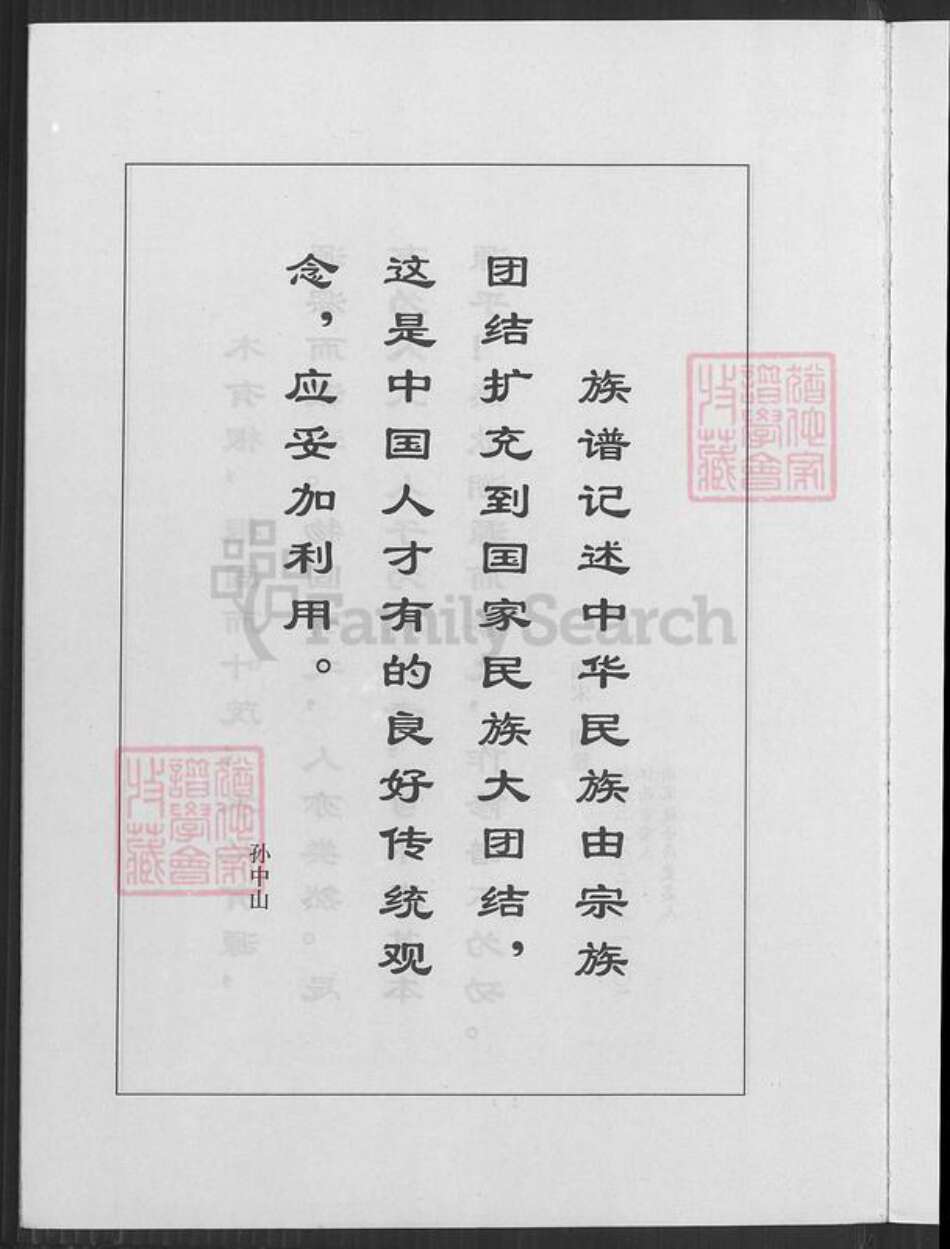 族谱记述中华民族由宗族
团结扩充到国家民族大团结，
这是中国人才有的良好传统观
念，应妥加利用。
孙中山
FamilySearch